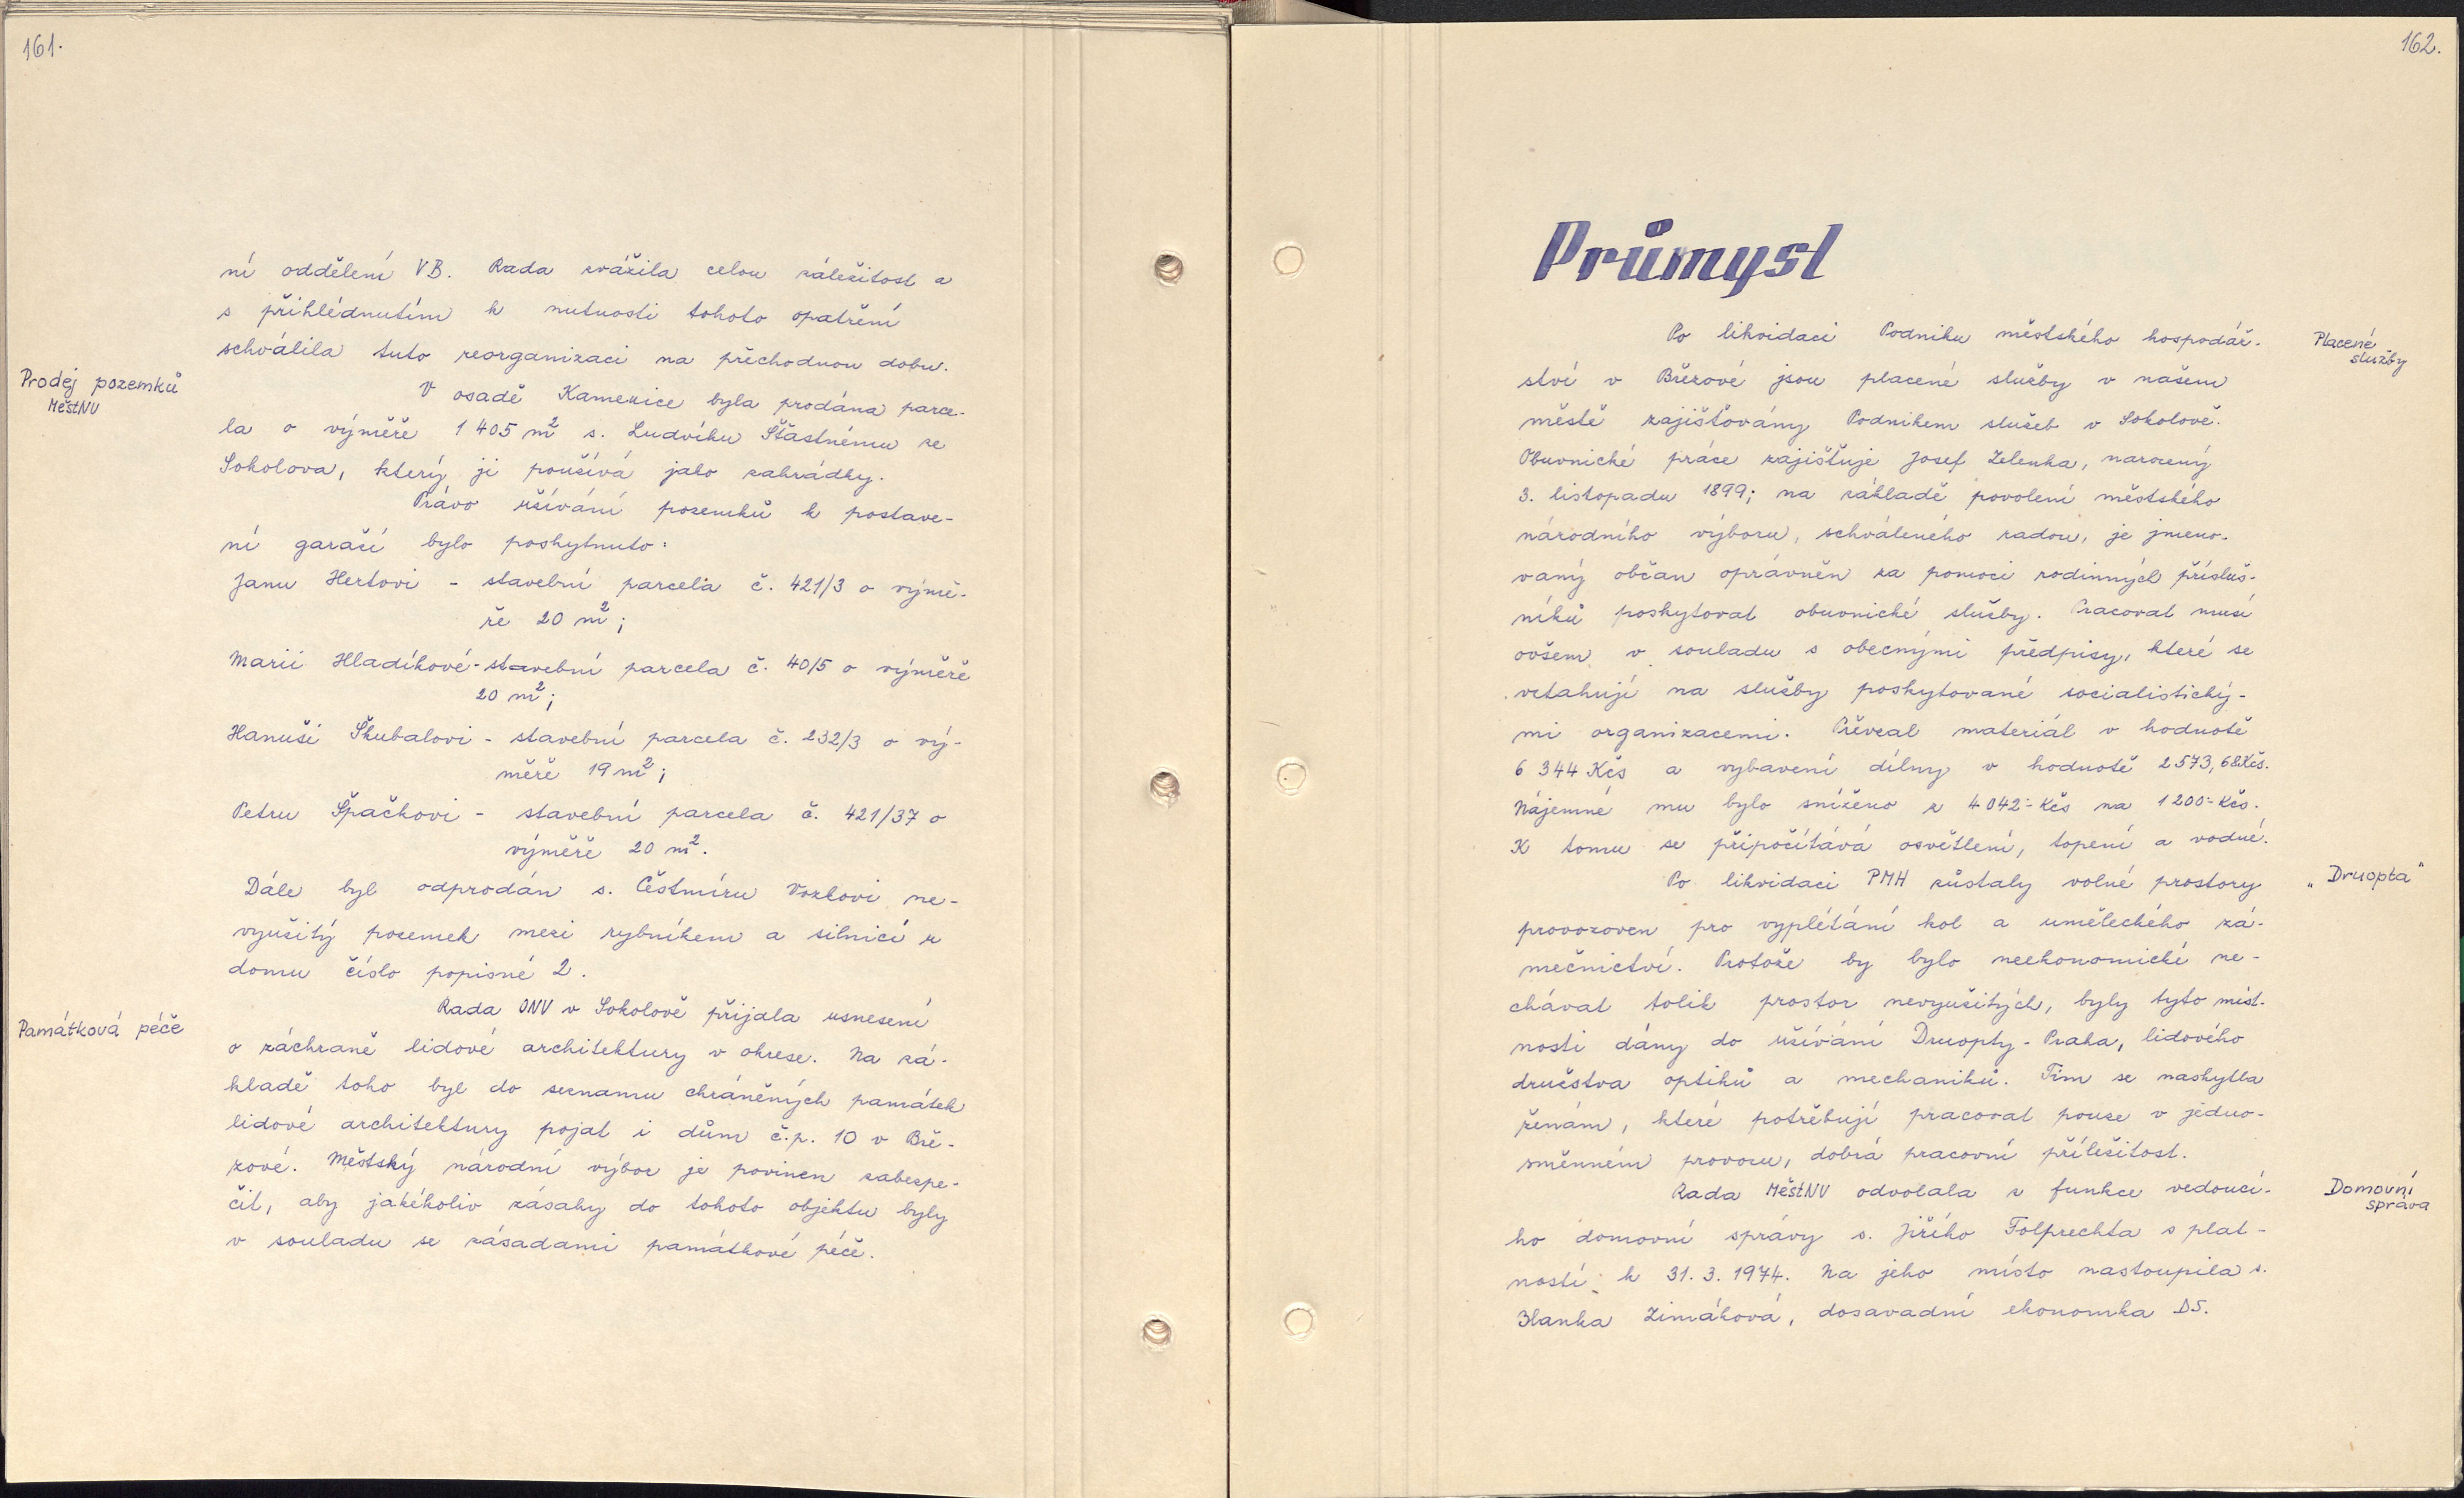 161.
ní oddělení VB. Rada zvážila celou záležitost a
s přihlédnutím k nutnosti tohoto opatření
schválila tuto reorganizaci na přechodnou dobu.
Prodej pozemků
MěstNV
V osadě Kamenice byla prodána parce-
la o výměře 1 405 m² s. Ludvíku Šťastnému ze
Sokolova, který ji používá jako zahrádky.
Právo užívání pozemků k postave-
ní garaží bylo poskytnuto:
Janu Hertovi - stavební parcela č. 421/3 o výmě-
ře 20 m²;
Marii Hladíkové - stavební parcela č. 40/5 o výměře
20 m²;
Hanuši Škubalovi - stavební parcela č. 232/3 o vý-
měře 19 m²;
Petru Špačkovi - stavební parcela č. 421/37 o
výměře 20 m².
Dále byl odprodán s. Čestmíru Vozkovi ne-
využitý pozemek mezi rybníkem a silnicí u
domu číslo popisné 2.
Památková péče
Rada ONV v Sokolově přijala usnesení
o záchraně lidové architektury v okrese. Na zá-
kladě toho byl do seznamu chráněných památek
lidové architektury pojat i dům č.p. 10 v Bře-
zové. Městský národní výbor je povinen zabezpe-
čit, aby jakékoliv zásahy do tohoto objektu byly
v souladu se zásadami památkové péče.
162.
Průmysl
Placené
služby
Po likvidaci Podniku městského hospodář-
ství v Březové jsou placené služby v našem
městě zajišťovány Podnikem služeb v Sokolově.
Obuvnické práce zajišťuje Josef Zelenka, narozený
3. listopadu 1899; na základě povolení městského
národního výboru, schváleného radou, je jmeno-
vaný občan oprávněn za pomoci rodinných přísluš-
níků poskytovat obuvnické služby. Pracovat musí
ovšem v souladu s obecnými předpisy, které se
vztahují na služby poskytované socialistický-
mi organizacemi. Převzal materiál v hodnotě
6 344 Kčs a vybavení dílny v hodnotě 2573,68 Kčs.
Nájemné mu bylo sníženo z 4 042.- Kčs na 1 200.- Kčs.
K tomu se připočítává osvětlení, topení a vodné.
„Druopta"
Po likvidaci PMH zůstaly volné prostory
provozoven pro vyplétání kol a uměleckého zá-
mečnictví. Protože by bylo neekonomické ne-
chávat tolik prostor nevyužitých, byly tyto míst-
nosti dány do užívání Druopty - Praha, lidového
družstva optiků a mechaniků. Tím se naskytla
ženám, které potřebují pracovat pouze v jedno-
směnném provozu, dobrá pracovní příležitost.
Domovní
správa
Rada MěstNV odvolala z funkce vedoucí-
ho domovní správy s. Jiřího Folprechta s plat-
ností k 31. 3. 1974. Na jeho místo nastoupila s.
Blanka Zimáková, dosavadní ekonomka DS.